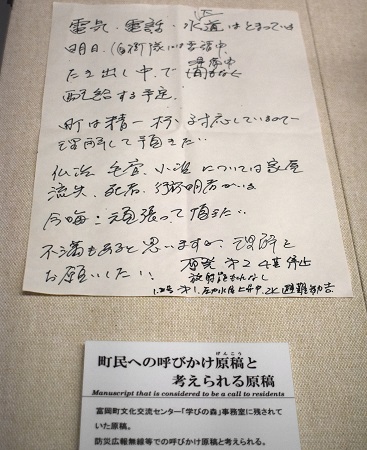 電気、電話、水道はとまっている
明日、自衛隊には要請中
準備中
たき出し中で間もなく
配給する予定.
町は精一杯対応しているので
理解して頂きたい
仏浜 毛萱、小浜 については家屋
流失、死者、行方明者がいる
今晩: 頑張って頂きたい
不満もあると思いますが、理解を
お願いしたい.
原発 第2 4基停止
放射能もれなし
1.2号 第1. 圧力 上昇中.2K 避難勧告
町民への呼びかけ原稿と
げんこう
考えられる原稿
Manuscript that is considered to be a call to residents
富岡町文化交流センター「学びの森」事務室に残されて
いた原稿。
防災広報無線等での呼びかけ原稿と考えられる。